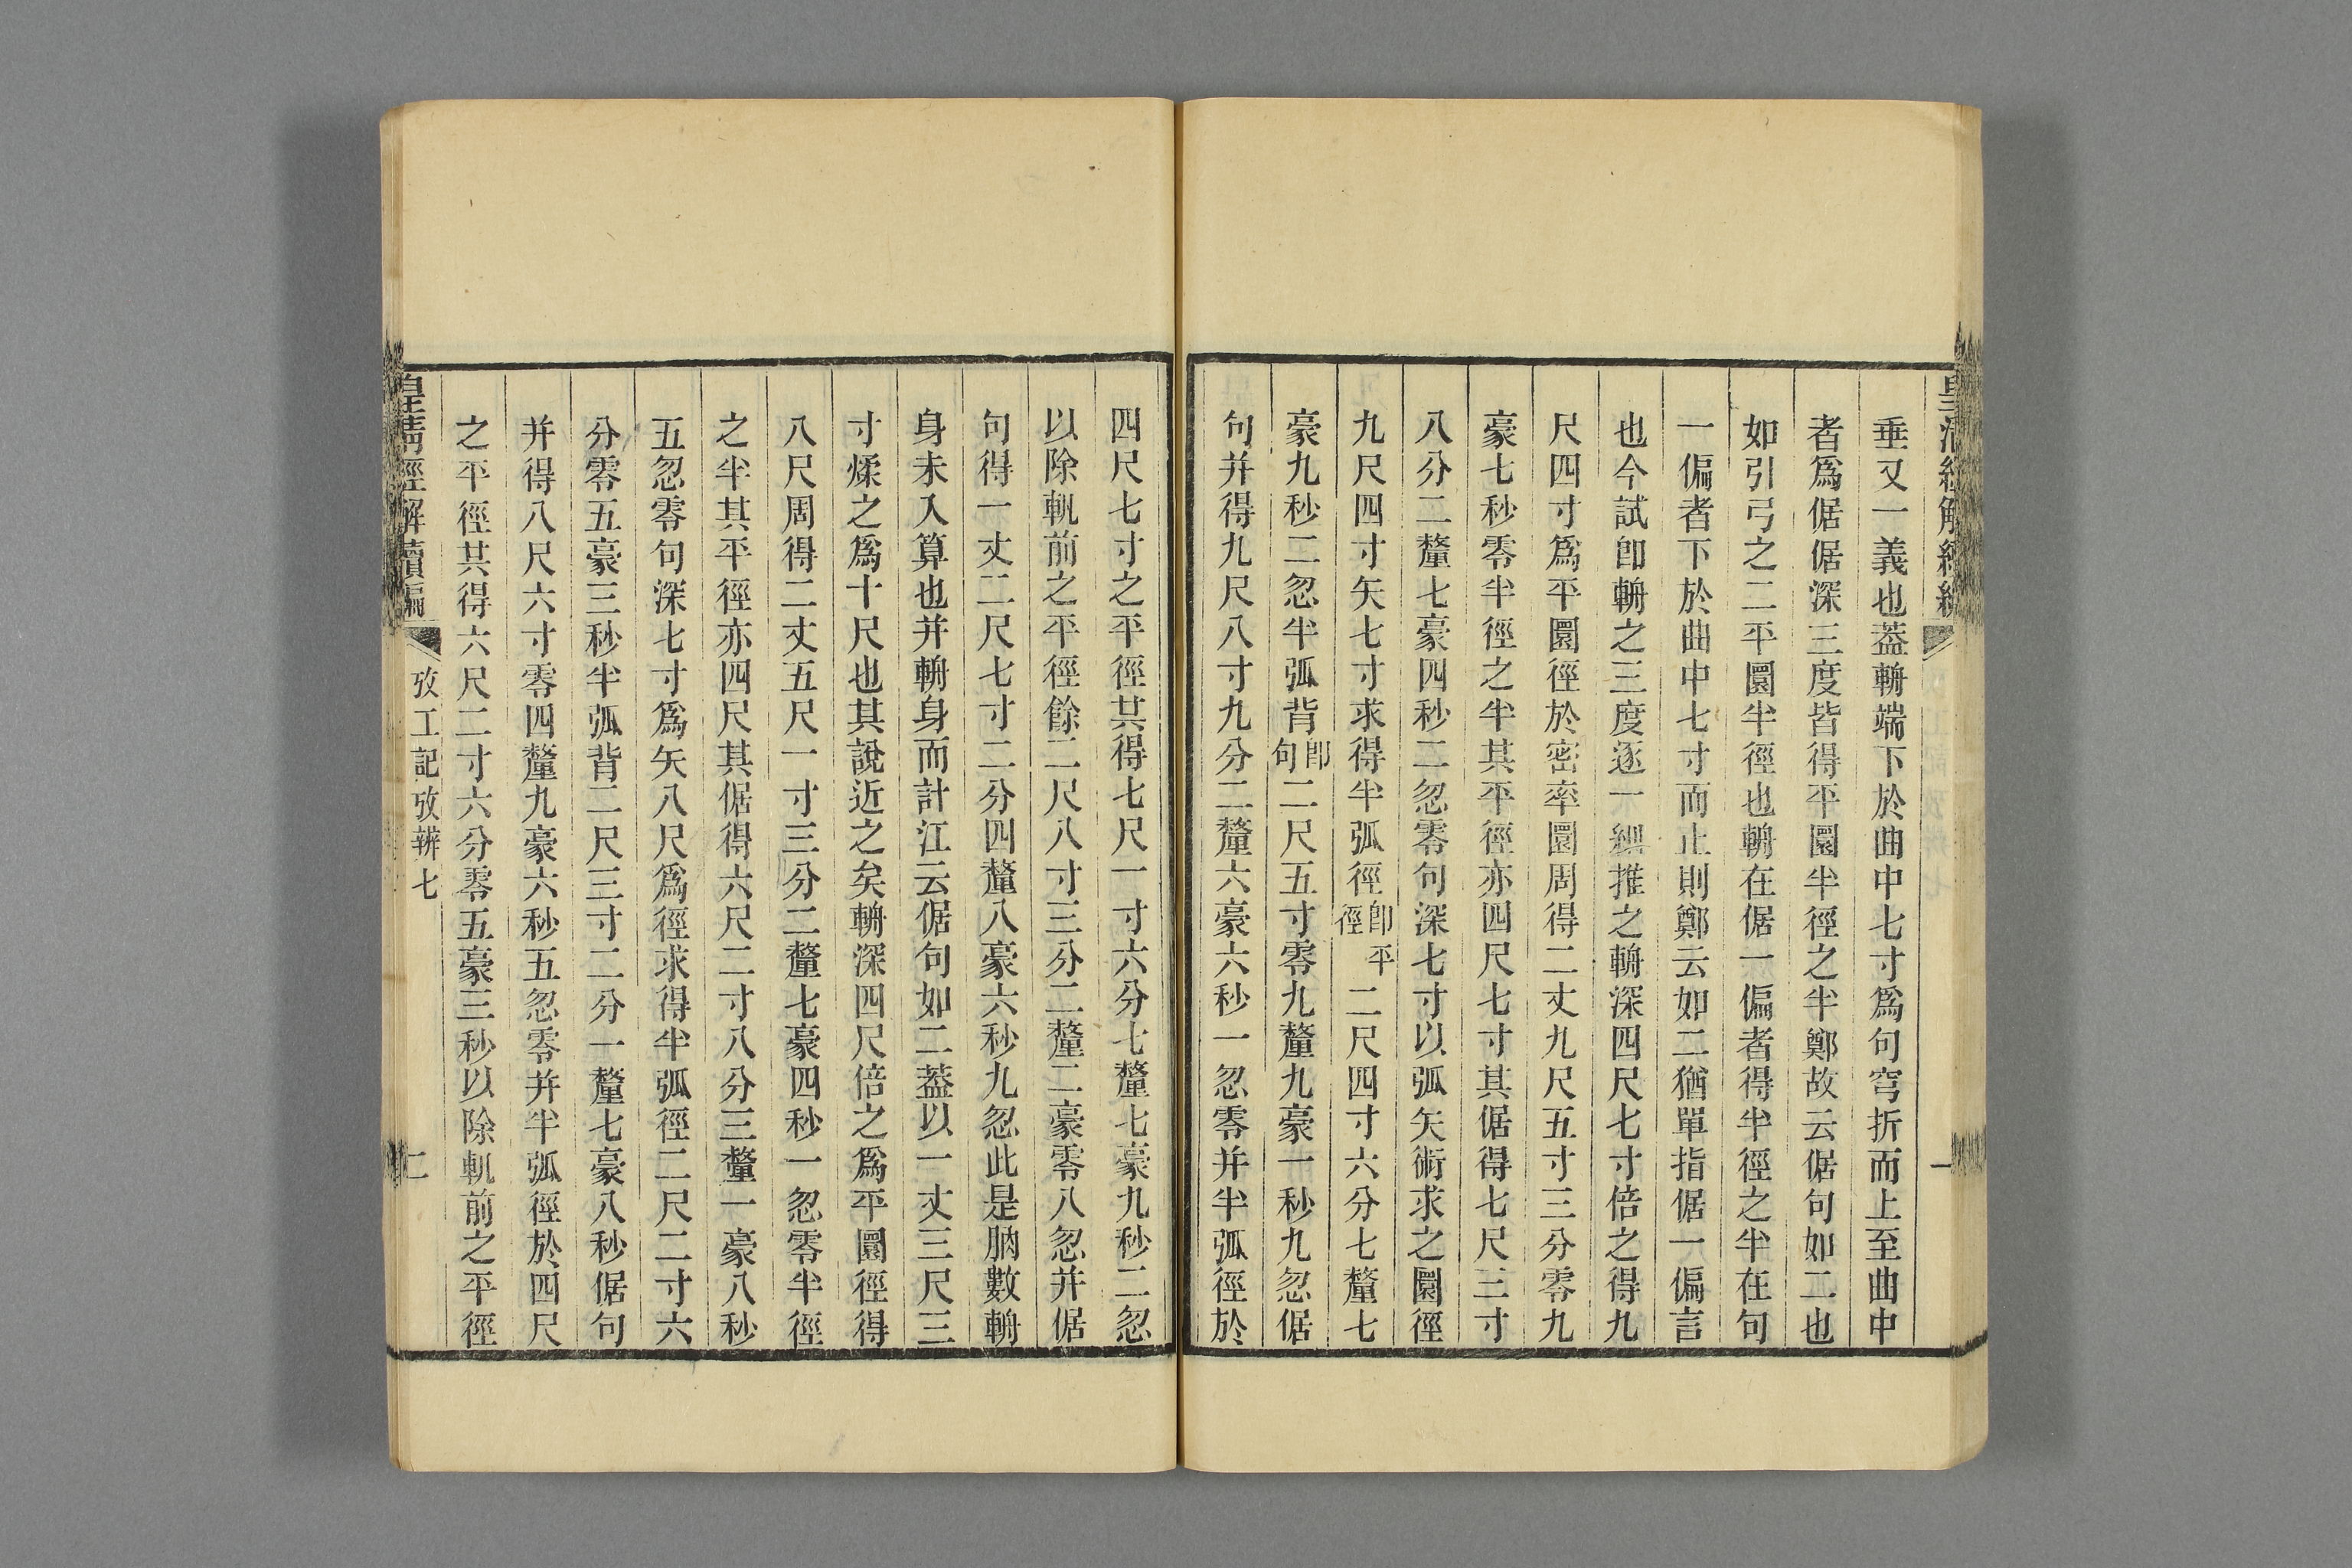 垂又一義也葢輈端下於曲中七寸爲句穹折而上至曲中
者爲倨倨深三度皆得平圜半徑之半鄭故云倨句如二也
如引弓之二平圜半徑也輈在倨一偏者得半徑之半在句
一偏者下於曲中七寸而止則鄭云如二猶單指倨一偏言
也今試卽輈之三度逐一細推之輈深四尺七寸倍之得九
尺四寸爲平圜徑於密率圜周得二丈九尺五寸三分零九
豪七秒零半徑之半其平徑亦四尺七寸其倨得七尺三寸
八分二釐七豪四秒二忽零句深七寸以弧矢術求之圜徑
九尺四寸矢七寸求得半弧徑卽平徑二尺四寸六分七釐七
豪九秒二忽半弧背卽句二尺五寸零九釐九豪一秒九忽倨
句并得九尺八寸九分二釐六豪六秒一忽零并半弧徑於
四尺七寸之平徑其得七尺一寸六分七釐七豪九秒二忽
以除軓前之平徑餘二尺八寸三分二釐二豪零八忽并倨
句得一丈二尺七寸二分四釐八豪六秒九忽此是胸數輈
身未入算也并輈身而計江云倨句如二葢以一丈三尺三
寸煣之爲十尺也其說近之矣輈深四尺倍之爲平圜徑得
八尺周得二丈五尺一寸三分二釐七豪四秒一忽零半徑
之半其平徑亦四尺其倨得六尺二寸八分三釐一豪八秒
五忽零句深七寸爲矢八尺爲徑求得半弧徑二尺二寸六
分零五豪三秒半弧背二尺三寸二分一釐七豪八秒倨句
并得八尺六寸零四釐九豪六秒五忽零并半弧徑於四尺
之平徑其得六尺二寸六分零五豪三秒以除軓前之平徑
皇淸經解續編
攷工記攷辨七
二